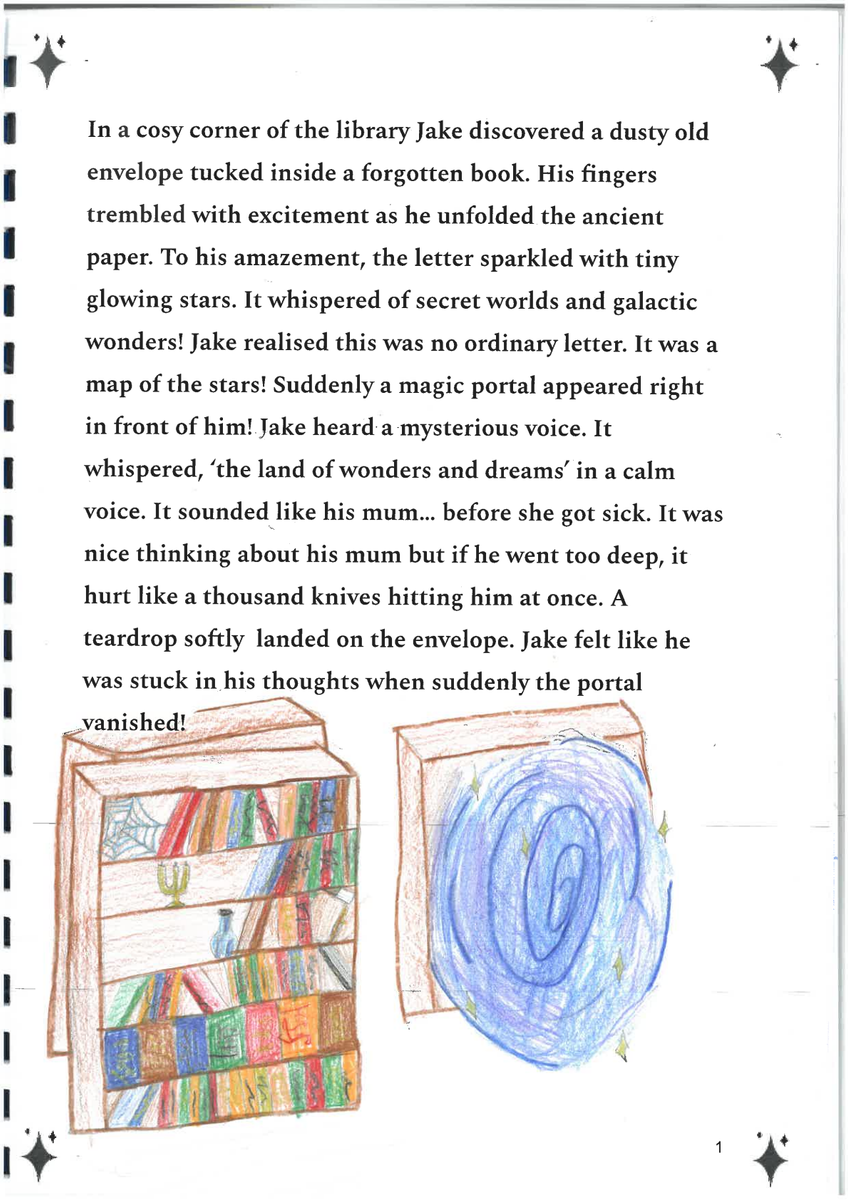 In a cosy corner of the library Jake discovered a dusty old
envelope tucked inside a forgotten book. His fingers
trembled with excitement as he unfolded the ancient
paper. To his amazement, the letter sparkled with tiny
glowing stars. It whispered of secret worlds and galactic
wonders! Jake realised this was no ordinary letter. It was a
map of the stars! Suddenly a magic portal appeared right
in front of him! Jake heard a mysterious voice. It
whispered, ‘the land of wonders and dreams’ in a calm
voice. It sounded like his mum... before she got sick. It was
nice thinking about his mum but if he went too deep, it
hurt like a thousand knives hitting him at once. A
teardrop softly  landed on the envelope. Jake felt like he
was stuck in his thoughts when suddenly the portal
vanished!
1